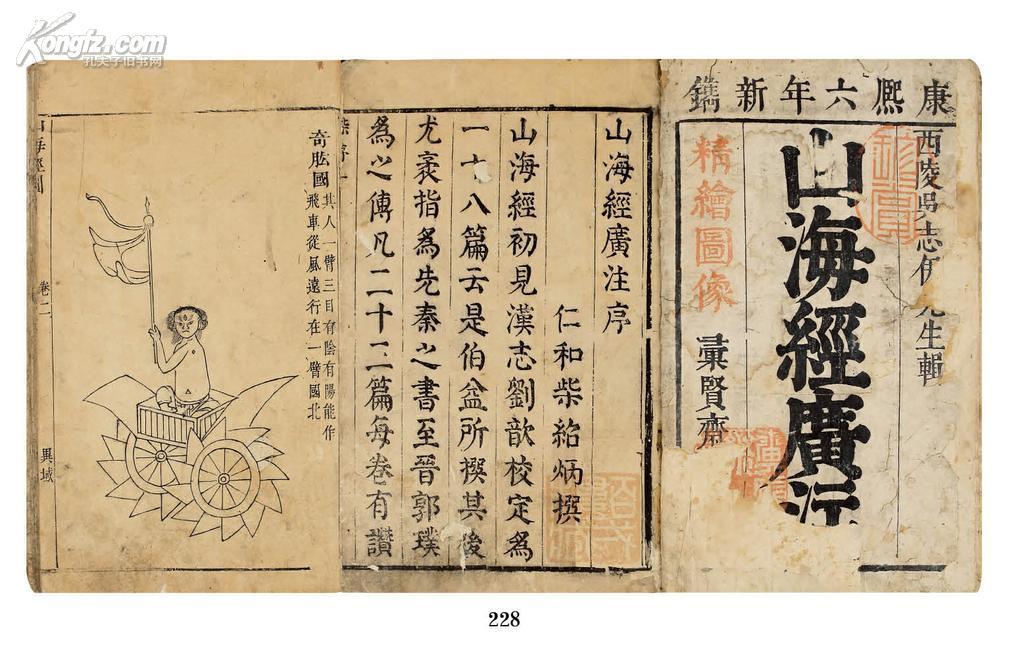 Kongfz.com
孔夫子旧书网
康熙六年新鐫
西陵吳志伊先生輯
山海經廣注
精繪圖像
彚賢齋
山海經廣注序
仁和柴紹炳撰
山海經初見漢志劉歆校定為
一十八篇云是伯益所撰其後
尤袤指為先秦之書至晉郭璞
為之傳凡二十三篇每卷有讚
柴序 一
奇肱國
其人一臂三目有陰有陽能作
飛車從風遠行在一臂國北
山海經圖
卷二
異域
228